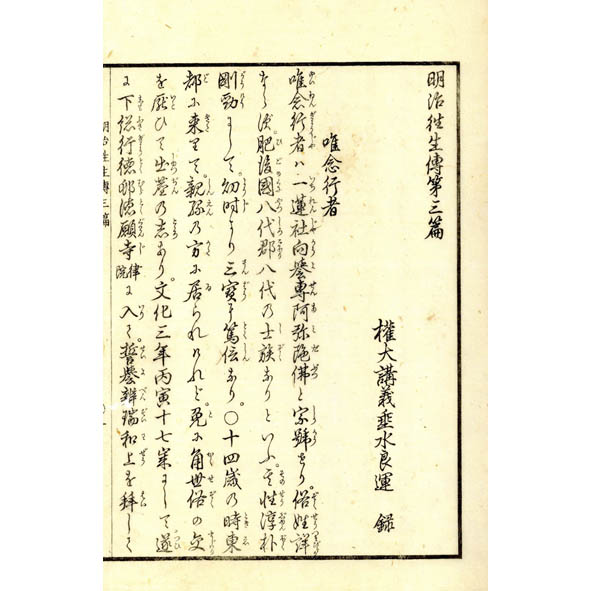 明治往生傳第三篇
權大講義垂水良運 録
唯念行者
唯念行者ハ一蓮社向譽專阿弥陁佛と字號せり。俗姓詳
ならず。肥後國八代郡八代の士族なりといふ。其性淳朴
剛勁にして。幼時より三寶に篤信なり。〇十四歳の時東
都に来りて。親孫の方に居られけれど。兎に角世俗の交
を厭ひて出塵の志あり。文化三年丙寅十七歳にして遂
に下総行徳郷徳願寺律院に入て誓譽辨瑞和上を拜して
明治往生傳三篇